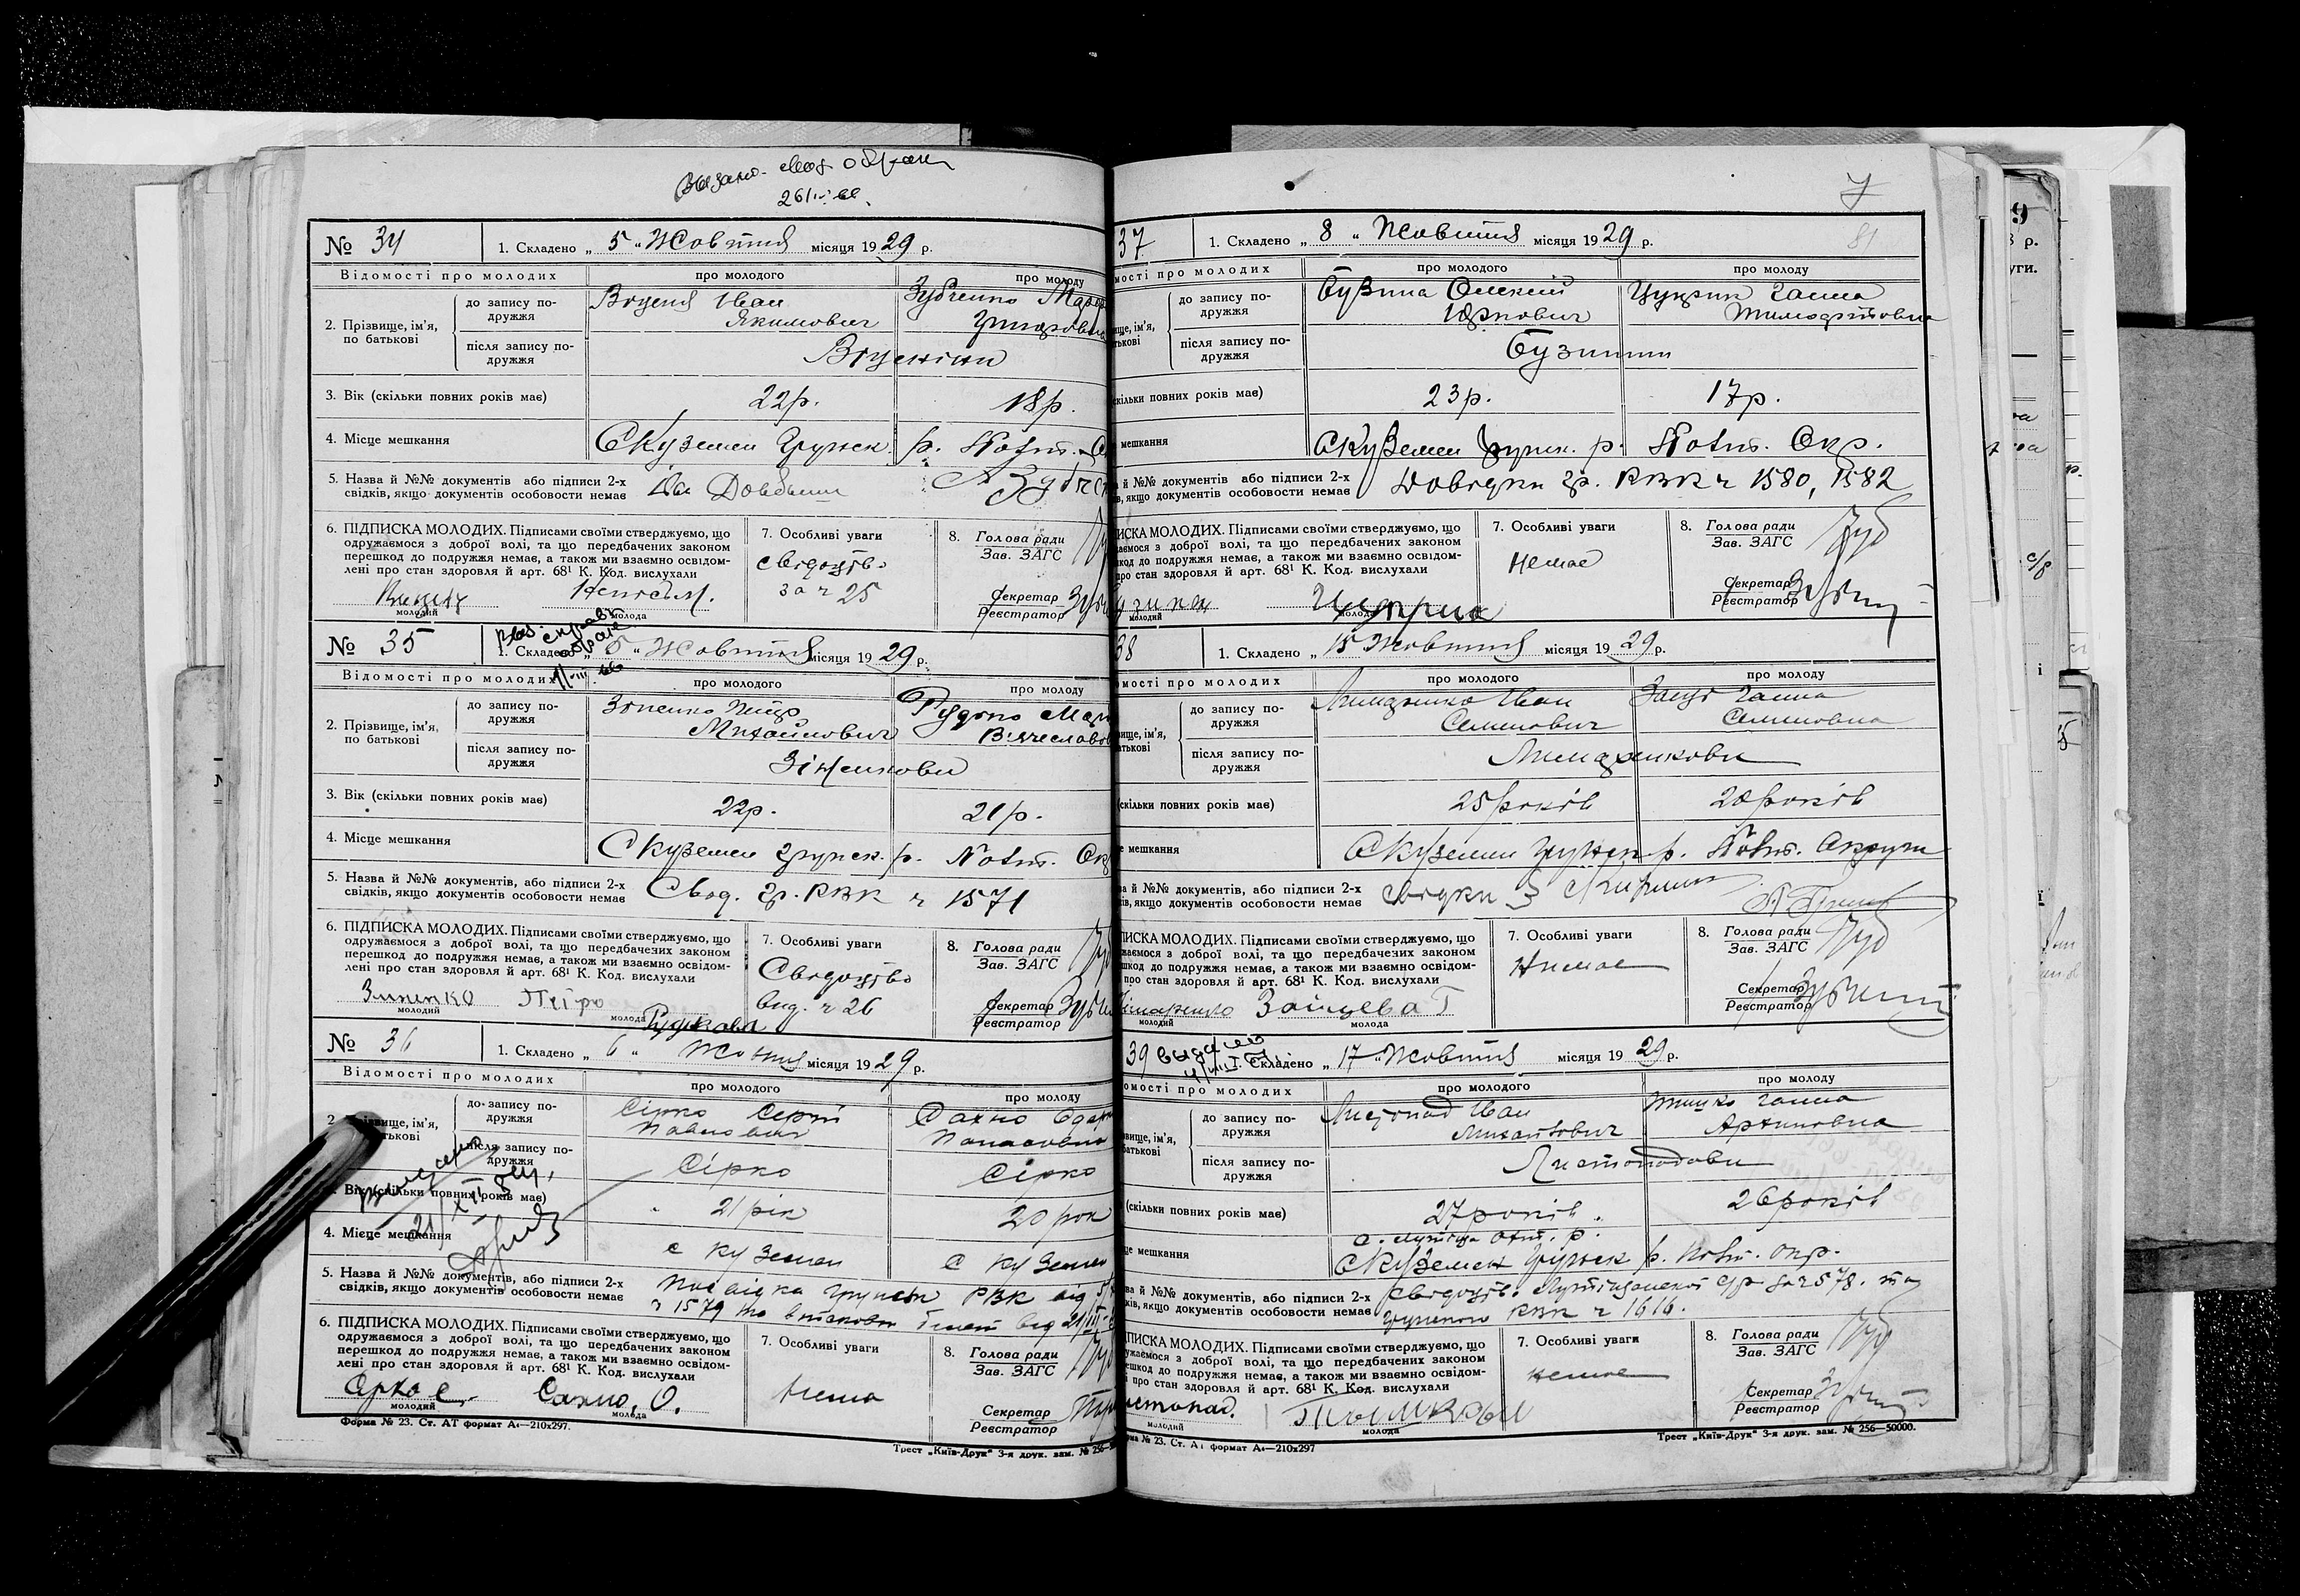 26/IV 66.
№ 34
1. Складено „ 5 " Жовтня місяця 1929 р.
Відомості про молодих
про молодого
про молоду
2. Прізвище, ім'я,
по батькові
до запису по-
дружжя
Іван
Якимович
Зубченко
після запису по-
дружжя
3. Вік (скільки повних років має)
22р.
18р.
4. Місце мешкання
С Куземен Грунск. р. Полт.
5. Назва й №№ документів або підписи 2-х
свідків, якщо документів особовости немає
6. ПІДПИСКА МОЛОДИХ. Підписами своїми стверджуємо, що
одружаємося з доброї волі, та що передбачених законом
перешкод до подружжя немає, а також ми взаємно освідом-
лені про стан здоровля й арт. 68¹ К. Код. вислухали
молодий
молода
7. Особливі уваги
свідоцтв.
за ч 25
8. Голова ради
Зав. ЗАГС
Секретар
Реєстратор
№ 35
1. Складено „ 5 " Жовтня місяця 1929 р.
Відомості про молодих
про молодого
про молоду
2. Прізвище, ім'я,
по батькові
до запису по-
дружжя
Зіненко Петр
Михайлович
Рудько Мар
Вячеславов
після запису по-
дружжя
Зіненкови
3. Вік (скільки повних років має)
22р.
21р.
4. Місце мешкання
С Куземен Грунск. р. Полт. Ок
5. Назва й №№ документів, або підписи 2-х
свідків, якщо документів особовости немає
Свод. Гр. РВК ч 1571
6. ПІДПИСКА МОЛОДИХ. Підписами своїми стверджуємо, що
одружаємося з доброї волі, та що передбачених законом
перешкод до подружжя немає, а також ми взаємно освідом-
лені про стан здоровля й арт. 68¹ К. Код. вислухали
Зиненко Петро
молодий
молода
7. Особливі уваги
Свідоцтво
вид. ч 26
8. Голова ради
Зав. ЗАГС
Секретар
Реєстратор
№ 36
1. Складено „ 6 " Жовтня місяця 1929 р.
Відомості про молодих
про молодого
про молоду
до запису по-
дружжя
Сірко Сергій
Павлович
Сахно Одар
Панасовна
після запису по-
дружжя
Сірко
Сірко
Вік (скільки повних років має)
21 рік
20 рок
4. Місце мешкання
с Куземен
с Куземен
5. Назва й №№ документів, або підписи 2-х
свідків, якщо документів особовости немає
Посвідка Грунськ РВК від
ч 1579
6. ПІДПИСКА МОЛОДИХ. Підписами своїми стверджуємо, що
одружаємося з доброї волі, та що передбачених законом
перешкод до подружжя немає, а також ми взаємно освідом-
лені про стан здоровля й арт. 68¹ К. Код. вислухали
Сахно, О.
молодий
молода
7. Особливі уваги
нема
8. Голова ради
Зав. ЗАГС
Секретар
Реєстратор
Форма № 23. Ст. АТ формат А₄—210x297.
Трест „Київ-Друк" 3-я друк. зам. № 256—
7
81
37
1. Складено „ 8 " Жовтня місяця 1929 р.
мості про молодих
про молодого
про молоду
ище, ім'я,
атькові
до запису по-
дружжя
Бузина Олексій
Юркович
Цуцрик Ганна
Тимофтовна
після запису по-
дружжя
Бузини
скільки повних років має)
23р.
17р.
мешкання
С Куземен Грунск. р. Полт. Окр.
й №№ документів або підписи 2-х
в, якщо документів особовости немає
Довідки Гр. РВК ч 1580, 1582
ИСКА МОЛОДИХ. Підписами своїми стверджуємо, що
аємося з доброї волі, та що передбачених законом
шкод до подружжя немає, а також ми взаємно освідом-
про стан здоровля й арт. 68¹ К. Код. вислухали
молодий
молода
7. Особливі уваги
Немає
8. Голова ради
Зав. ЗАГС
Секретар
Реєстратор
38
1. Складено „ 15 Жовтня місяця 1929 р.
омості про молодих
про молодого
про молоду
вище, ім'я,
атькові
до запису по-
дружжя
Лимаренко Іван
Семенович
Заєць Ганна
Семеновна
після запису по-
дружжя
Лимаренкови
(скільки повних років має)
25 років
20 років
е мешкання
С Куземен Грунск р. Полт. Округи
ва й №№ документів, або підписи 2-х
ків, якщо документів особовости немає
Свідки
ПИСКА МОЛОДИХ. Підписами своїми стверджуємо, що
жаємося з доброї волі, та що передбачених законом
шкод до подружжя немає, а також ми взаємно освідом-
про стан здоровля й арт. 68¹ К. Код. вислухали
Зайцева Г
молодий
молода
7. Особливі уваги
Немає
8. Голова ради
Зав. ЗАГС
Секретар
Реєстратор
39
1. Складено „ 17 " Жовтня місяця 1929 р.
омості про молодих
про молодого
про молоду
вище, ім'я,
батькові
до запису по-
дружжя
Листопад Іван
Михайлович
Ганна
Архиповна
після запису по-
дружжя
Листопадови
(скільки повних років має)
27 років.
26 років
це мешкання
С Куземен Грунск р. Полт. Окр.
ва й №№ документів, або підписи 2-х
ків, якщо документів особовости немає
РВК ч 1616.
ПИСКА МОЛОДИХ. Підписами своїми стверджуємо, що
ужаємося з доброї волі, та що передбачених законом
ешкод до подружжя немає, а також ми взаємно освідом-
і про стан здоровля й арт. 68¹ К. Код. вислухали
молодий
молода
7. Особливі уваги
немає
8. Голова ради
Зав. ЗАГС
Секретар
Реєстратор
ма № 23. Ст. АТ формат А₄—210x297
Трест „Київ-Друк" 3-я друк. зам. № 256—50000.